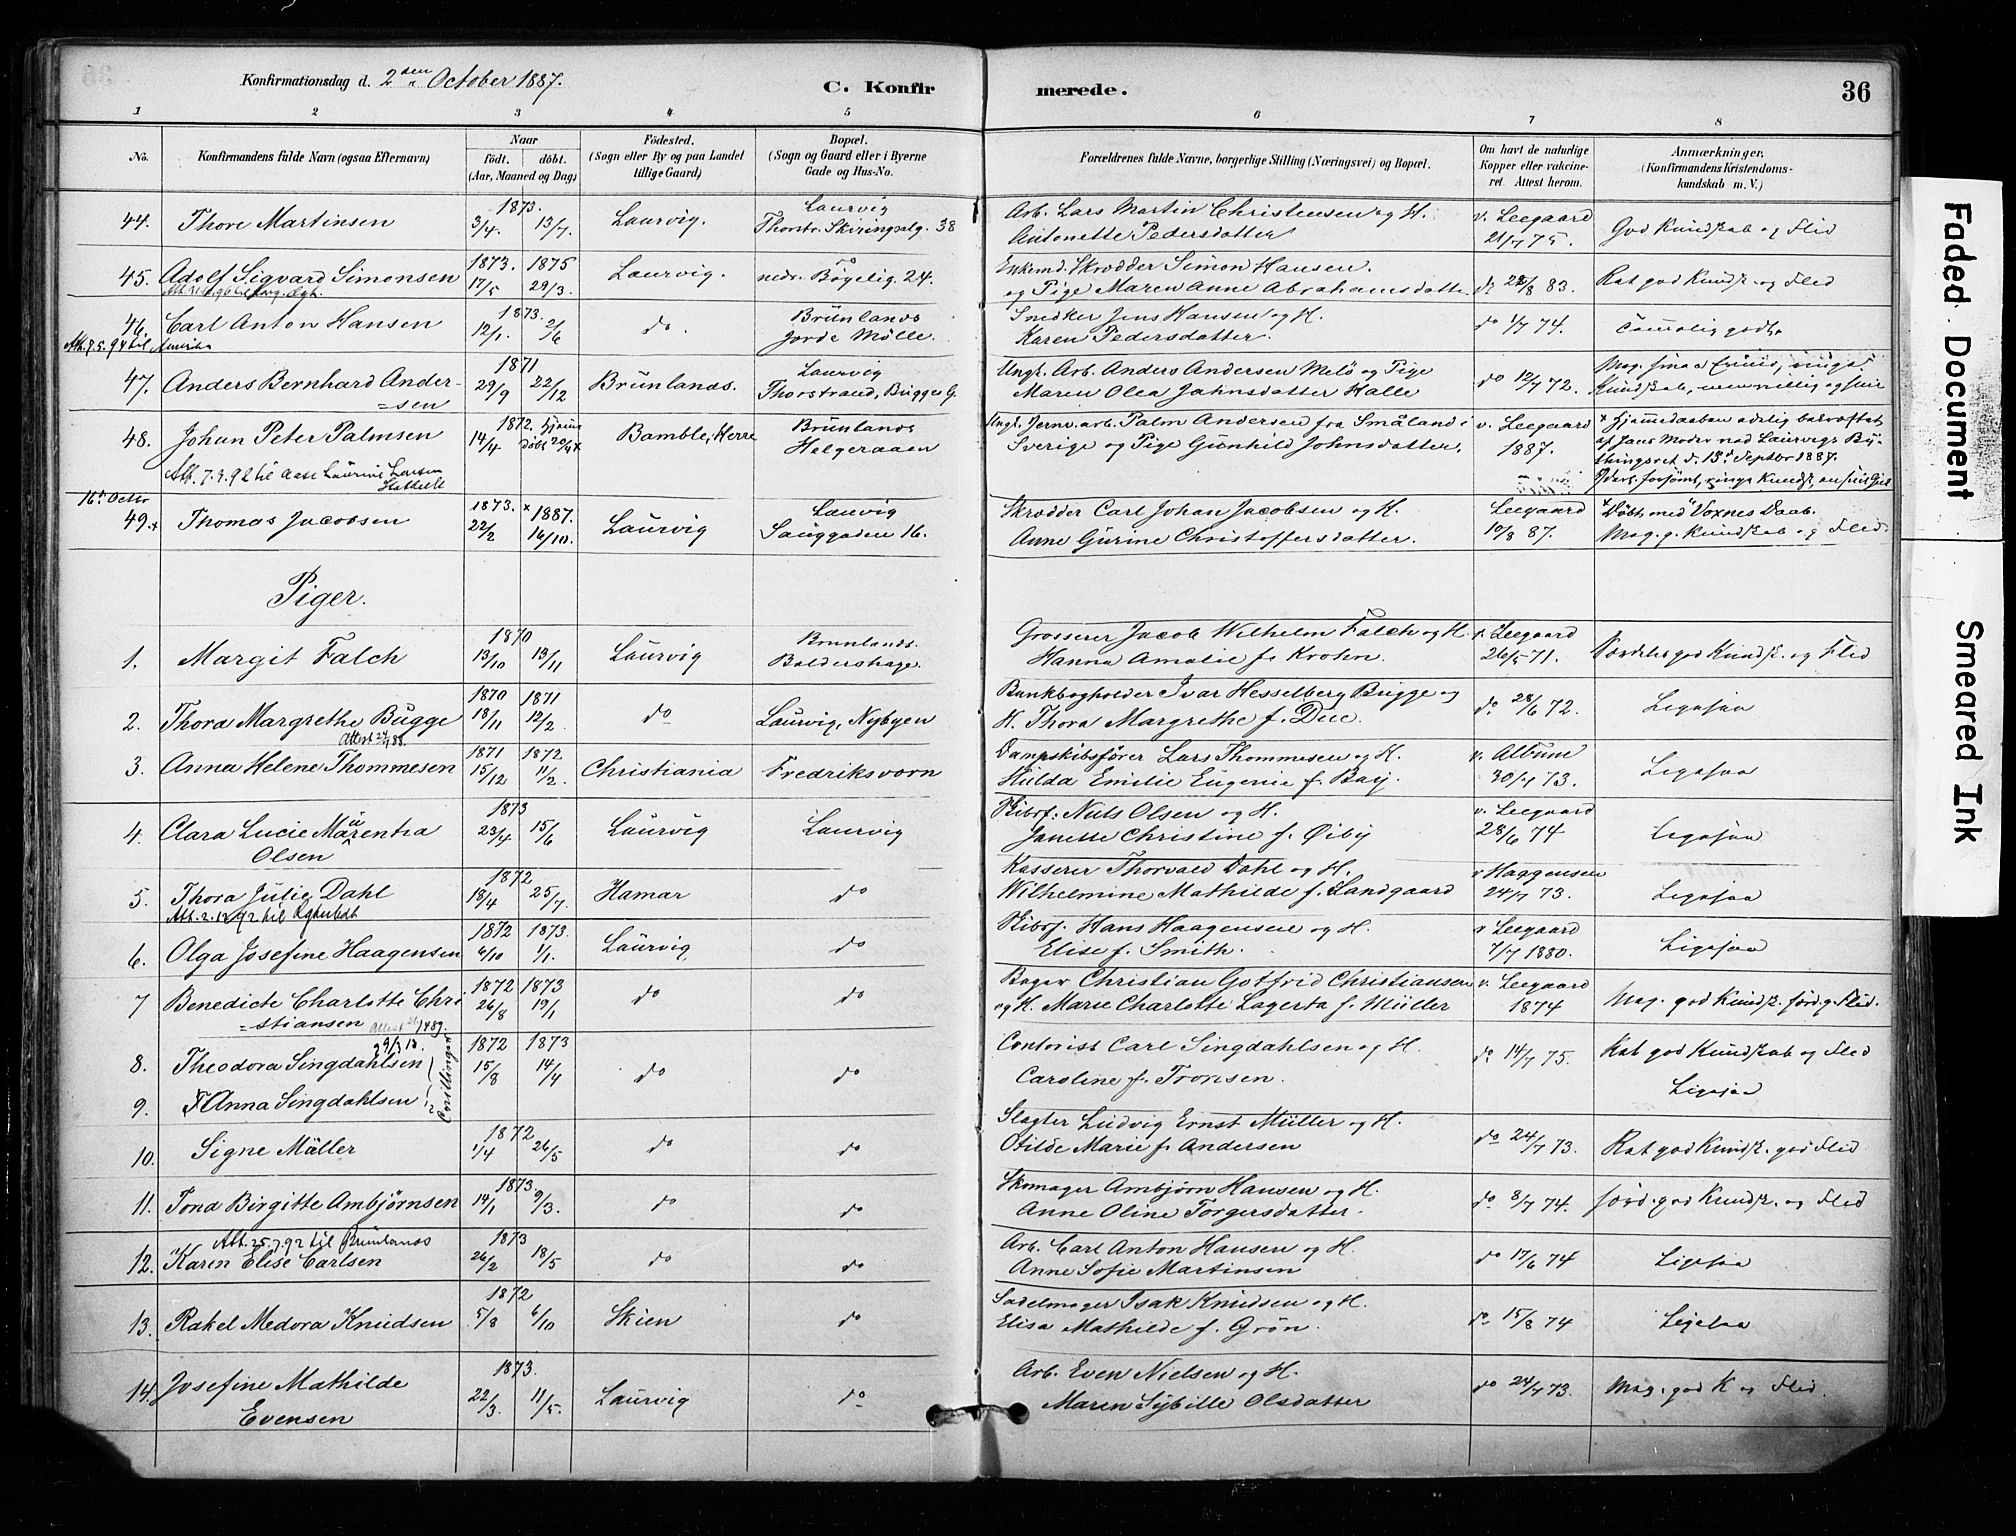 Konfirmationsdag d. 2den October 1887.
C. Konfirmerede.
36
1 2 3 4 5 6 7 8
No.
Konfirmandens fulde Navn (ogsaa Efternavn)
Naar
født. døbt.
(Aar, Maaned og Dag)
Fødested.
(Sogn eller By og paa Landet
tillige Gaard)
Bopæl.
(Sogn og Gaard eller i Byerne
Gade og Hus-No.
Forældrenes fulde Navne, borgerlige Stilling (Næringsvei) og Bopæl.
Om havt de naturlige
Kopper eller vakcine-
ret. Attest herom.
Anmærkninger,
(Konfirmandens Kristendoms-
kundskab m. V.)
44. Thore Martinsen 1873. 3/4. 13/7. Laurvig. Laurvig
Thorstr. Skiringsalg. 38
Arb. Lars Martin Christensen og H.
Antonette Pedersdatter
v. Leegaard
21/7 75.
God Kundskab og Flid
45. Adolf Sigvard Simonsen 1873. 17/5 1875 29/3. Laurvig. do
nedr. Bøgelig. 24.
Enkemd. Skrædder Simon Hansen.
og Pige Maren Anne Abrahamsdatter
do 28/8 83.
Rat god Kundsk. og Flid
46. Carl Anton Hansen 1873. 12/1. 2/6 do. Brunlands
Jorde Mølle.
Att. 7.5.94 til Amerika
Snedker Jens Hansen og H.
Karen Pedersdatter.
do 1/7 74.
Tæmelig godt
47. Anders Bernhard Ander-
=sen
1871 29/9 22/12 Brunlands. Laurvig
Thorstrand, Brygge G.
Ungk. Arb. Anders Andersen Melø og Pige
Maren Olea Jahnsdatter Halle
do 12/7 72.
48. Johan Peter Palmsen 1872. 14/4 Hjemmedøbt 20/4 x Bamble, Herre Brunlands
Helgeraaen
Att. 7.3.92 til Aase Laurine Larsen
Ungk. Jernv. arb. Palm Andersen fra Småland i
Sverige og Pige Gunhild Johnsdatter.
v. Leegaard
1887.
x Hjemmedaaben edelig bekræftet
af hans Moder ved Laurvigs By-
thingsret d. 13d Septbr 1887.
16d Octbr
49. x Thomas Jacobsen 1873. 22/2 x 1887. 16/10. Laurvig Laurvig
Sauggaden 16.
Skrædder Carl Johan Jacobsen og H.
Anne Gurine Christoffersdatter.
Leegaard
10/8 87.
x Døbt med Voxnes Daab.
Mag. g. Kundskab og Flid.
Piger.
1. Margit Falch 1870 13/10 13/11 Laurvig Brunlands.
Baldershage.
Grosserer Jacob Wilhelm Falch og H.
Hanna Amalie f. Krohn.
v. Leegaard
26/5 71.
Særdeles god Kundsk. og Flid
2. Thora Margrethe Bugge 1870 18/11 1871 12/2. do Laurvig, Nybyen
Bankbogholder Ivar Hesselberg Bugge og
H. Thora Margrethe f. Due.
do 28/6 72.
Ligesaa
3. Anna Helene Thommesen 1871 15/12 1872 11/2. Christiania Fredriksværn
Dampskibsfører Lars Thommesen og H.
Hulda Emilie Eugenie f. Bay.
v. Album
30/7 73.
Ligesaa
4. Clara Lucie Maurentia
Olsen
1873 23/4 15/6 Laurvig Laurvig
Skibsf: Niels Olsen og H.
Janette Christine f. Øiby
v. Leegaard
28/6 74
Ligesaa
5. Thora Julie Dahl 1872 18/4 25/7. Hamar do
Kasserer Thorvald Dahl og H.
Wilhelmine Mathilde f. Landgaard
v Haggensen
24/7 73.
Ligesaa
6. Olga Josefine Haagensen 1872 6/10 1873. 1/1. Laurvig do
Skibsf. Hans Haagensen og H.
Elise f. Smith.
v Leegaard
7/7 1880.
Ligesaa
7 Benedicte Charlotte Chri
=stiansen
1872 26/8 1873 19/1 do do
Bager Christian Gotfrid Christiansen
og H. Marie Charlotte Lagerta f. Müller
v. Leegaard
1874
Mag. god Kundsk. særd. g. Flid.
8. Theodora Singdahlsen 1872 15/8 1873 14/4 do do
9. Anna Singdahlsen
Tvillinger
Contorist Carl Singdahlsen og H.
Caroline f. Tronsen.
do 14/7 75.
Rat god Kundskab og Flid
Ligesaa
10. Signe Müller 1872 1/4 26/5 do do
Slagter Ludvig Ernst Müller og H.
Otilde Marie f. Andersen
do 24/7 73.
Rat god Kundsk. god Flid
11. Tona Birgitte Ambjørnsen 1873. 14/1 9/3. do do
Skomager Ambjørn Hansen og H.
Anne Oline Torgersdatter.
do 8/7 74.
særd. god Kundsk. og Flid
12. Karen Elise Carlsen 1873 26/2 18/5 do do
Att. 25.7.92 til Brunlands
Arb. Carl Anton Hansen og H.
Anne Sofie Martinsen
do 17/6 74
Ligesaa
13. Rakel Medora Knudsen 1872 5/8 6/10 Skien do
Sadelmager Isak Knudsen og H.
Elisa Mathilde f. Grøn.
do 15/8 74
Ligesaa
14. Josefine Mathilde
Evensen
1873. 22/3. 11/5. Laurvig do
Arb. Even Nielsen og H.
Maren Sybille Olsdatter
do 24/7 73.
Mag. god K og Flid.
Faded Document
Smeared Ink